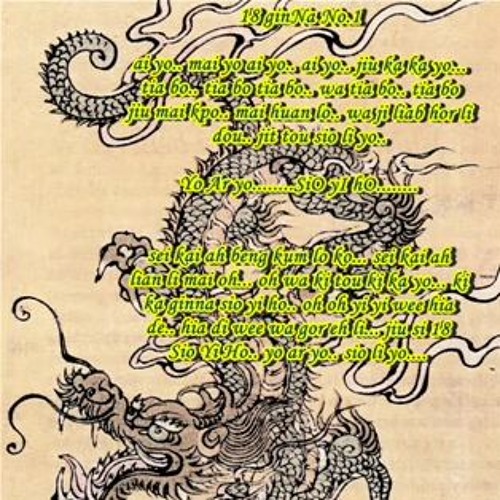 18 ginNa No.1
ai yo.. mai yo ai yo.. ai yo.. jiu ka ka yo...
tia bo.. tia bo tia bo.. wa tia bo.. tia bo
jiu mai kpo.. mai huan lo.. wa ji liab hor li
dou.. jit tou sio li yo..
Yo Ar yo........SiO yI hO........
sei kai ah beng kum lo ko... sei kai ah
lian li mai oh... oh wa ki tou ki ka yo... ki
ka ginna sio yi ho.. oh oh yi yi wee hia
de.. hia di wee wa gor eh li... jiu si 18
Sio Yi Ho.. yo ar yo.. sio li yo....